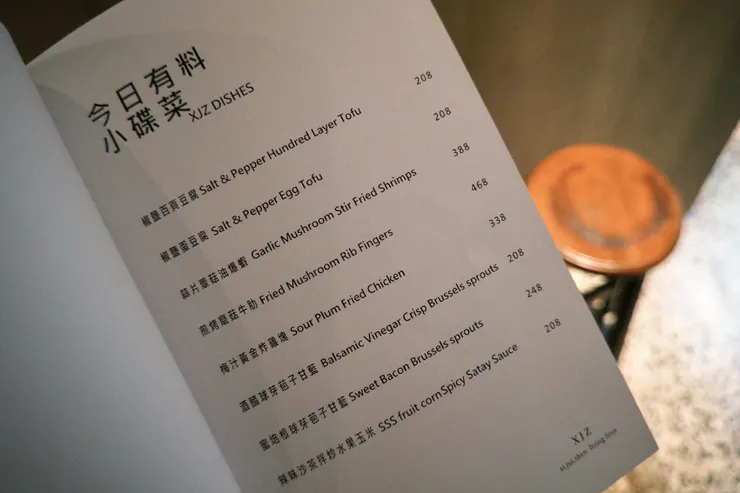 今日有料
小碟菜 XJZ DISHES
椒鹽百頁豆腐 Salt & Pepper Hundred Layer Tofu 208
椒鹽蛋豆腐 Salt & Pepper Egg Tofu 208
蒜片蕈菇油爆蝦 Garlic Mushroom Stir Fried Shrimps 388
煎烤蘑菇牛肋 Fried Mushroom Rib Fingers 468
梅汁黃金炸雞塊 Sour Plum Fried Chicken 338
酒醋球芽苞子甘藍 Balsamic Vinegar Crisp Brussels sprouts 208
蜜培根球芽苞子甘藍 Sweet Bacon Brussels sprouts 248
辣味沙茶拌炒水果玉米 SSS fruit cornSpicy Satay Sauce 208
XJZ